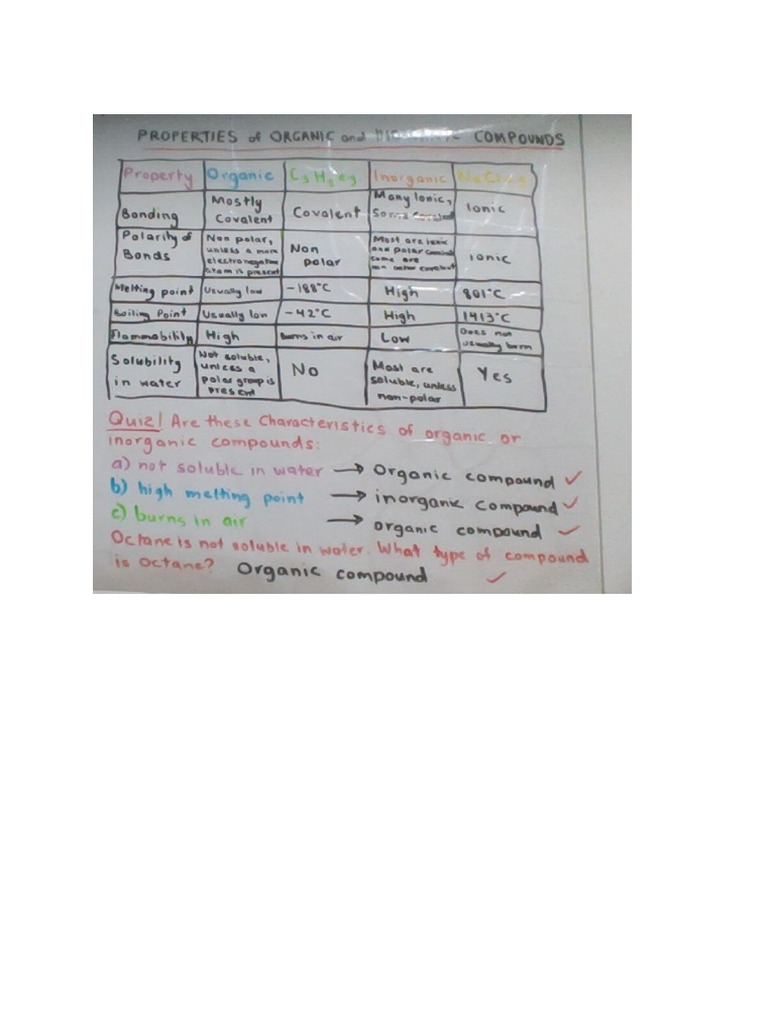 PROPERTIES of ORGANIC and COMPOUNDS
Property Organic C3H8 e.g. Inorganic NaCl e.g
Bonding Mostly Covalent Covalent Many Ionic, Some covalent Ionic
Polarity of Bonds Non polar, unless a more electronegative atom is present Non polar Most are ionic and polar some are non covalent ionic
Melting point Usually low -188°C High 801°C
Boiling Point Usually low -42°C High 1413°C
Flammability High Burns in air Low Does not usually burn
Solubility in water Not soluble, unless a polar group is present No Most are soluble, unless non-polar Yes
Quiz! Are these Characteristics of organic or
inorganic compounds:
a) not soluble in water → Organic compound ✓
b) high melting point → inorganic compound ✓
c) burns in air → organic compound ✓
Octane is not soluble in water. What type of compound
is Octane? Organic compound ✓